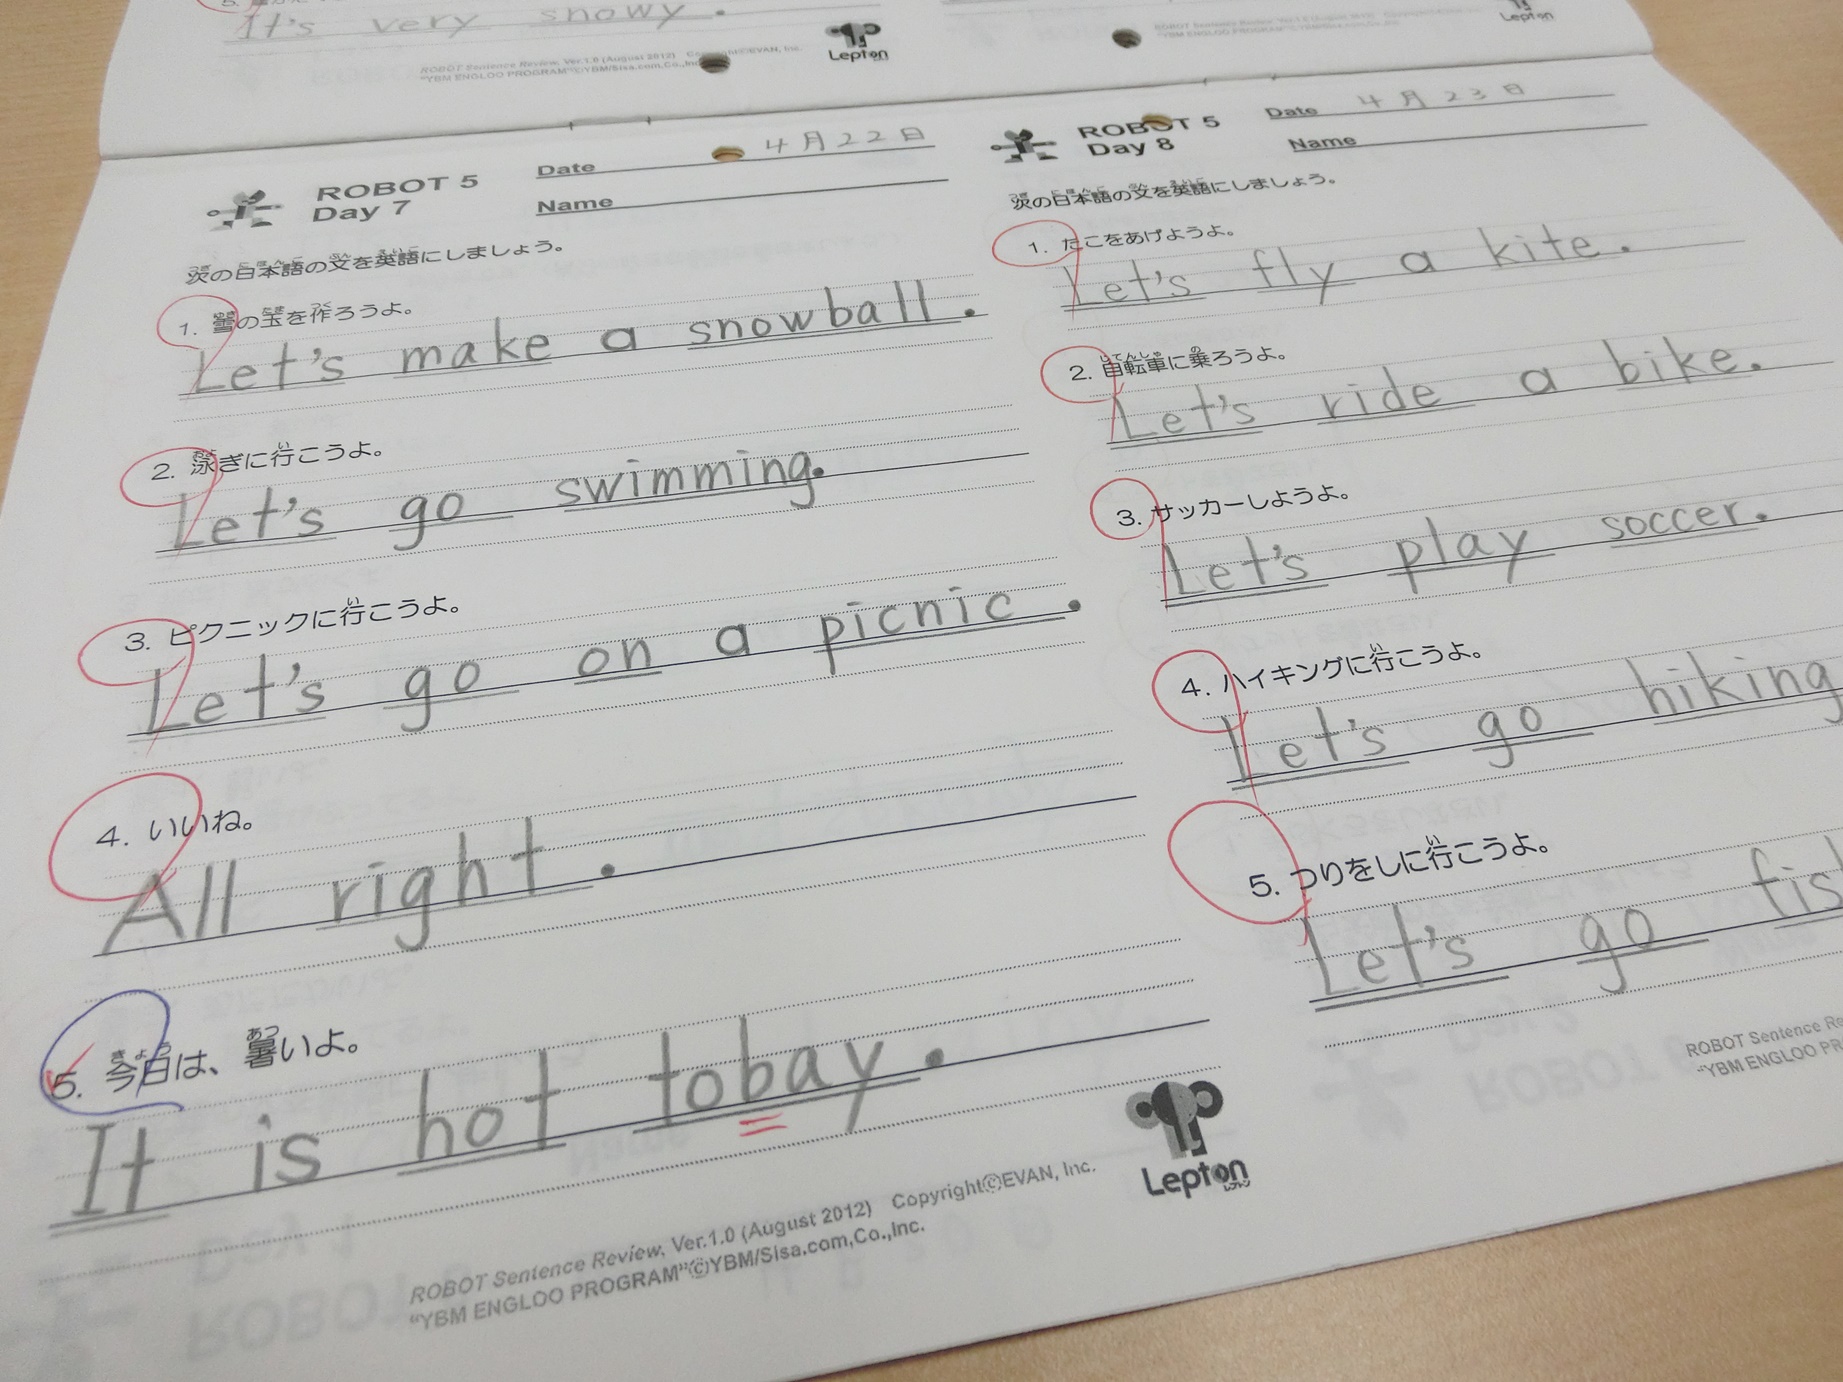 It's very snowy.
ROBOT Sentence Review, Ver.1.0 (August 2012) Copyright©EVAN, Inc.
"YBM ENGLOO PROGRAM"©YBM/Sisa.com,Co.,Inc.
Lepton
Lepton
ROBOT 5
Day 7
Date 4月22日
Name
次の日本語の文を英語にしましょう。
1. 雪の玉を作ろうよ。
Let's make a snowball.
2. 泳ぎに行こうよ。
Let's go swimming.
3. ピクニックに行こうよ。
Let's go on a picnic.
4. いいね。
All right.
5. 今日は、暑いよ。
It is hot tobay.
ROBOT Sentence Review, Ver.1.0 (August 2012) Copyright©EVAN, Inc.
"YBM ENGLOO PROGRAM"©YBM/Sisa.com,Co.,Inc.
Lepton
ROBOT 5
Day 8
Date 4月23日
Name
次の日本語の文を英語にしましょう。
1. たこをあげようよ。
Let's fly a kite.
2. 自転車に乗ろうよ。
Let's ride a bike.
3. サッカーしようよ。
Let's play soccer.
4. ハイキングに行こうよ。
Let's go hiking
5. つりをしに行こうよ。
Let's go fis
ROBOT Sentence Re
"YBM ENGLOO PR